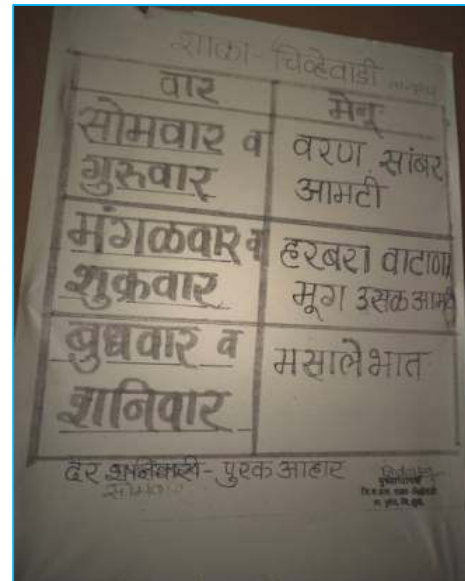 शाळा - चिव्हेवाडी
वार
मेनू
सोमवार व
गुरुवार
वरण, सांबर
आमटी
मंगळवार व
शुक्रवार
हरबरा वाटाणा
मूग उसळ आमटी
बुधवार व
शनिवार
मसालेभात
दर शनिवारी - पुरक आहार
सोमवार